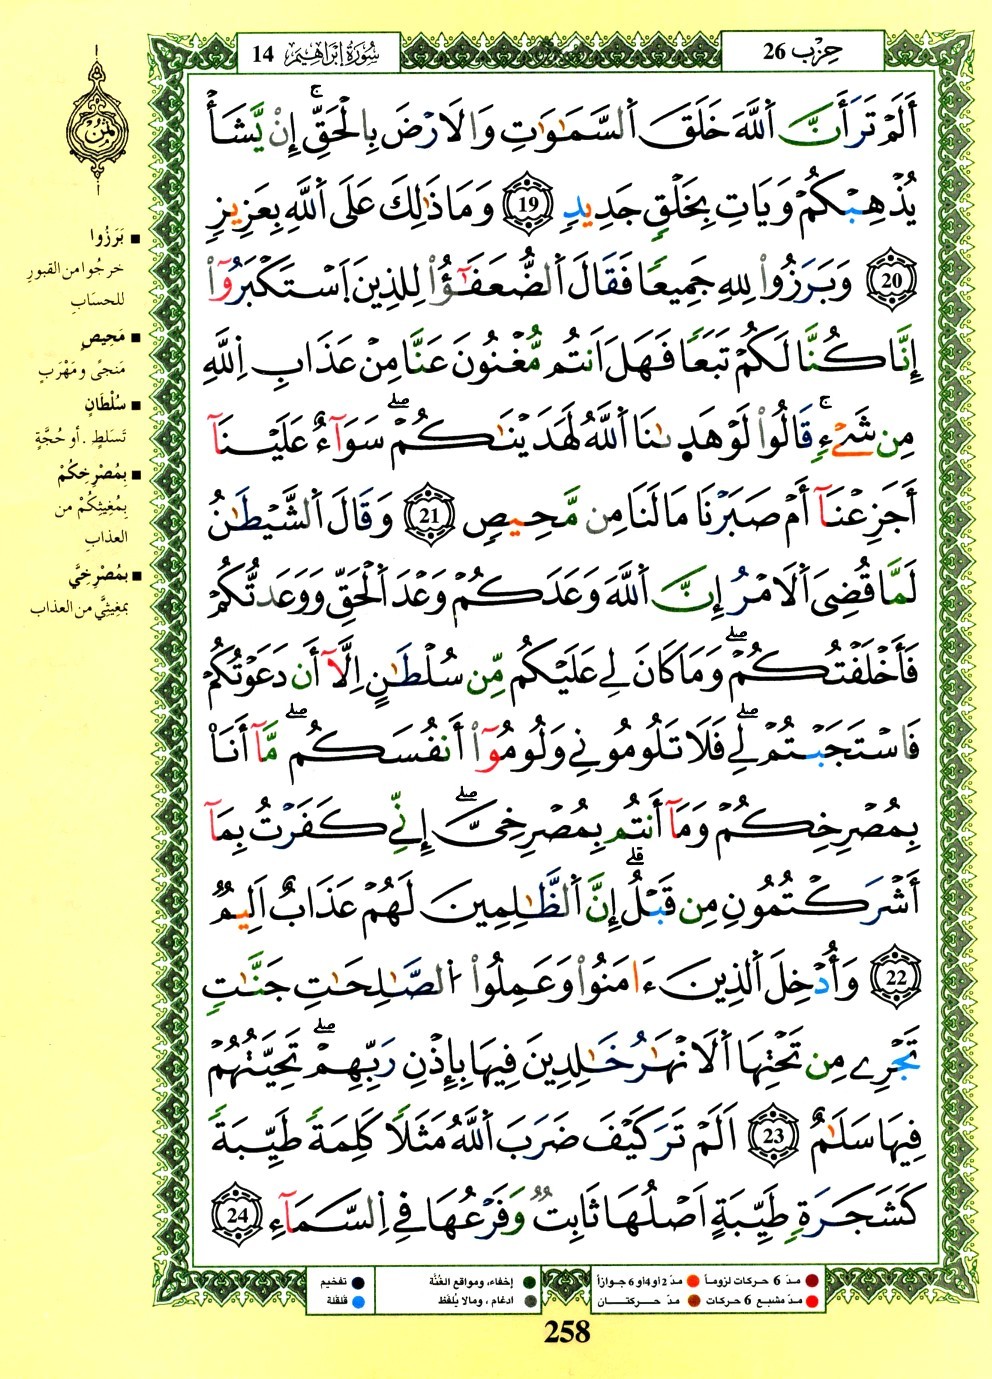 سُورَةُ إِبْرَاهِيمَ 14
حِزْب 26
أَلَمْ تَرَ أَنَّ اَللَّهَ خَلَقَ اَلسَّمَٰوَٰتِ وَالَارْضَ بِالْحَقِّۚ إِنْ يَّشَأْ
يُذْهِبْكُمْ وَيَاتِ بِخَلْقٍ جَدِيدٍ 19 وَمَا ذَٰلِكَ عَلَى اَللَّهِ بِعَزِيزٍ
20 وَبَرَزُواْ لِلهِ جَمِيعًا فَقَالَ اَلضُّعَفَٰٓؤُاْ لِلذِينَ اَسْتَكْبَرُوٓاْ
إِنَّا كُنَّا لَكُمْ تَبَعًا فَهَلَ اَنتُم مُّغْنُونَ عَنَّا مِنْ عَذَابِ اِللَّهِ
مِن شَےْءٍۚ قَالُواْ لَوْ هَدٜىٰنَا اَللَّهُ لَهَدَيْنَٰكُمْۖ سَوَآءٌ عَلَيْنَآ
أَجَزِعْنَآ أَمْ صَبَرْنَا مَا لَنَا مِن مَّحِيصٍ 21 وَقَالَ اَلشَّيْطَٰنُ
لَمَّا قُضِىَ اَلَامْرُ إِنَّ اَللَّهَ وَعَدَكُمْ وَعْدَ اَلْحَقِّ وَوَعَدتُّكُمْ
فَأَخْلَفْتُكُمْۖ وَمَا كَانَ لِے عَلَيْكُم مِّن سُلْطَٰنٍ اِلَّآ أَن دَعَوْتُكُمْ
فَاسْتَجَبْتُمْ لِےۖ فَلَا تَلُومُونِے وَلُومُوٓاْ أَنفُسَكُمۖ مَّآ أَنَاْ
بِمُصْرِخِكُمْ وَمَآ أَنتُم بِمُصْرِخِىَّۖ إِنِّے كَفَرْتُ بِمَآ
أَشْرَكْتُمُونِ مِن قَبْلُۗ إِنَّ اَلظَّٰلِمِينَ لَهُمْ عَذَابٌ اَلِيمٌ
22 وَأُدْخِلَ اَلذِينَ ءَامَنُواْ وَعَمِلُواْ اُلصَّٰلِحَٰتِ جَنَّٰتٍ
تَجْرِے مِن تَحْتِهَا اَلَانْهَٰرُ خَٰلِدِينَ فِيهَا بِإِذْنِ رَبِّهِمْۖ تَحِيَّتُهُمْ
فِيهَا سَلَٰمٌ 23 اَلَمْ تَرَ كَيْفَ ضَرَبَ اَللَّهُ مَثَلًا كَلِمَةً طَيِّبَةً
كَشَجَرَةٍ طَيِّبَةٍ اَصْلُهَا ثَابِتٌ وَفَرْعُهَا فِے اِلسَّمَآءِ 24
ثمن
■ بَرَزُوا
خرجُوا من القبورِ
للحسَابِ
■ مَحِيصٍ
مَنجىً ومَهْرَبٍ
■ سُلْطَانٍ
تَسَلطٍ . أو حُجَّةٍ
■ بِمُصْرِخِكُمْ
بِمُغيثِكُمْ من
العذابِ
■ بمُصْرِخِيَّ
بمغيثِيَّ من العذاب
مدّ 6 حركات لزوماً
مدّ 2 أو 4 أو 6 جوازاً
إخفاء، ومواقع الغُنَّة
تفخيم
مدّ مشبع 6 حركات
مدّ حركتان
ادغام ، ومالا يُلفَظ
قلقلة
258